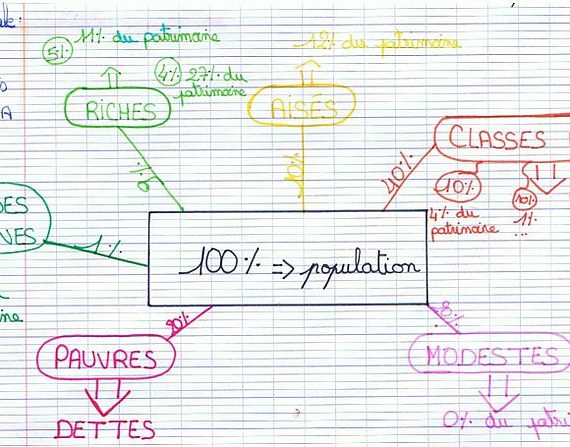 11% du patrimoine
5%
4% 27% du
patrimoine
RICHES
12% du patrimoine
AISÉS
10%
CLASSES
40%
10%
4% du
patrimoine
10%
1%
...
DES
VES
1%
100% => population
20%
PAUVRES
DETTES
MODESTES
0% du patri